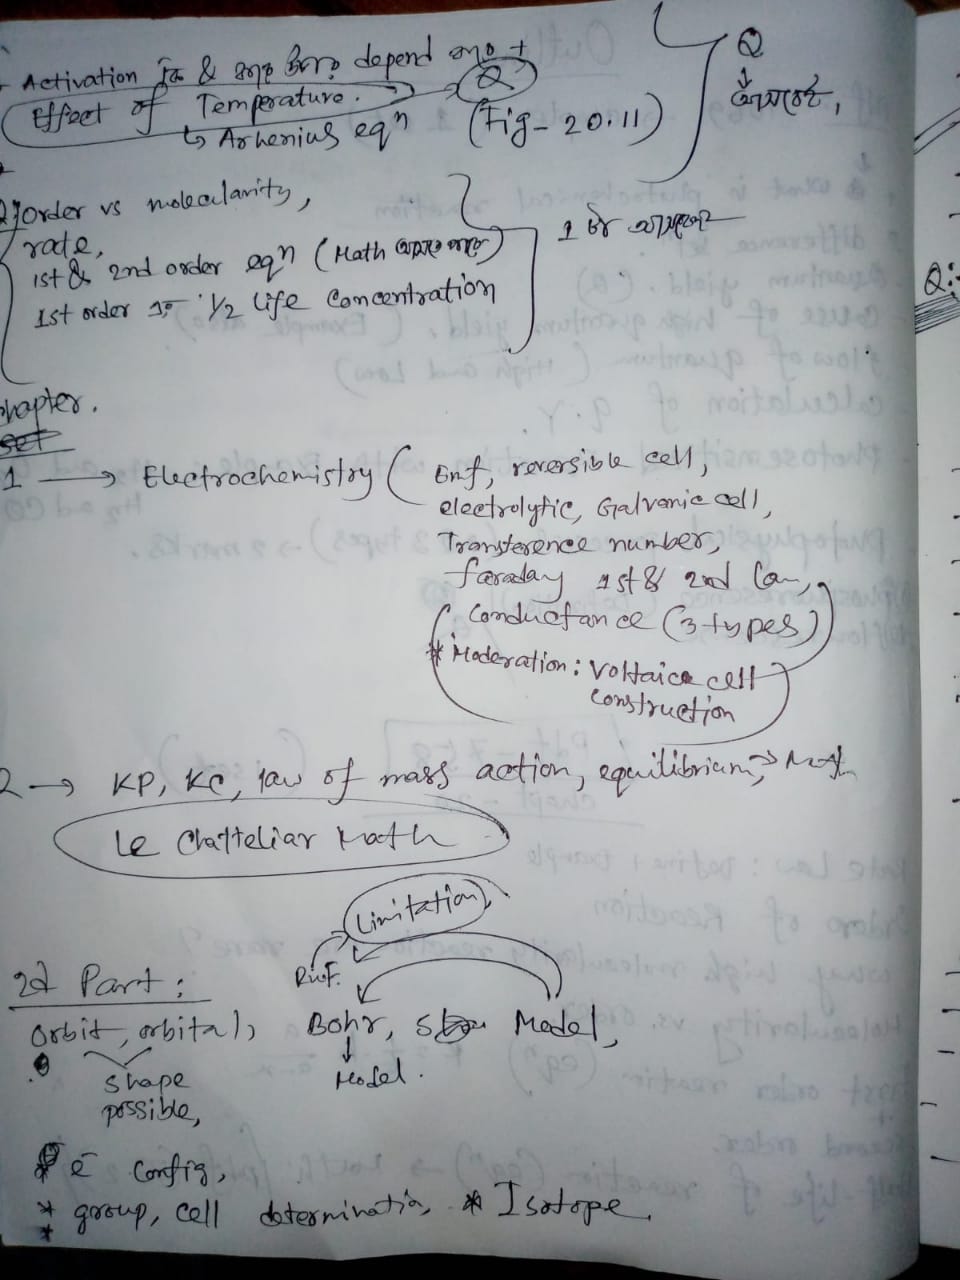 Activation কি & depend + Q
Effect of Temperature.
↳ Arhenius eqn (Fig- 20.11)
Q
↓
2) order vs molecularity,
rate,
1st & 2nd order eqn (Math
1st order ½ life Concentration
1 টা
Q:-
chapter.
set
1 → Electrochemistry ( Emf, reversible cell,
electrolytic, Galvanic cell,
Transference number,
faraday 1st & 2nd law,
Conductance (3 types)
* Moderation: Voltaice cell
Construction
2 → KP, KC, law of mass action, equilibrium, → Math
Le Chatteliar Math
Limitation
Ruf.
2d Part:
Orbit, orbital, Bohr, Model,
shape
possible,
↓
Model.
* e- config,
* group, cell determination, * Isotope.